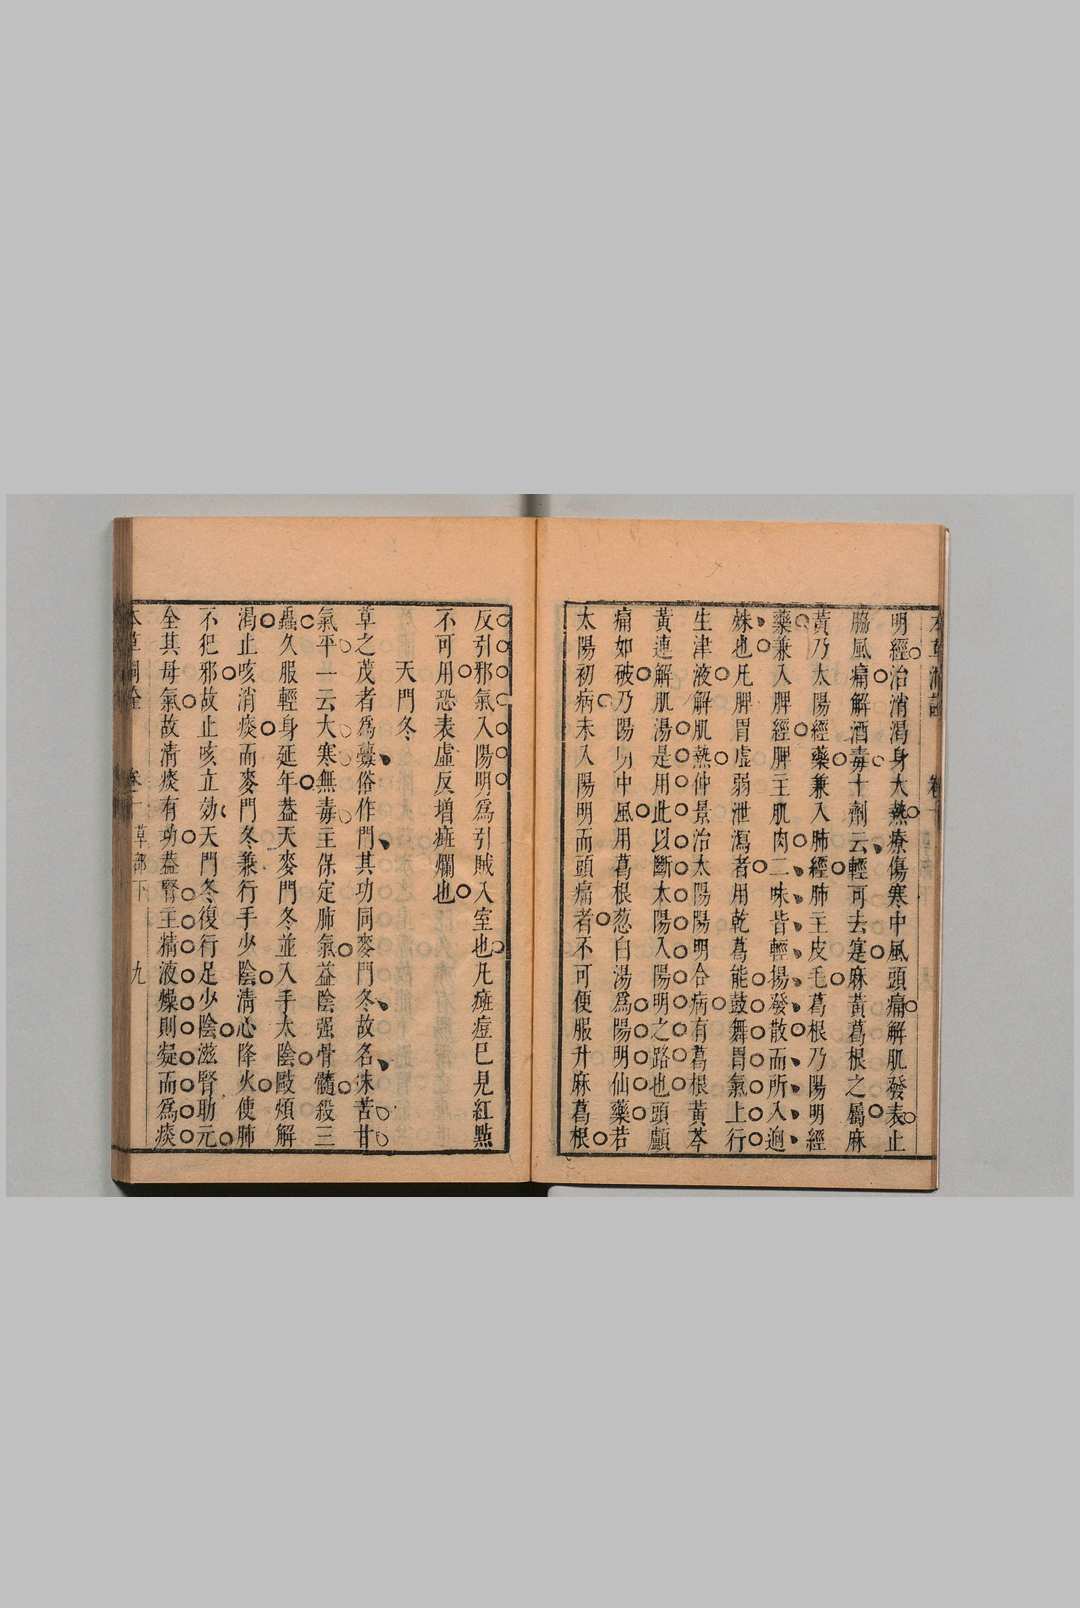 明經治消渴身大熱療傷寒中風頭痛解肌發表止
脇風痛解酒毒十劑云輕可去寔麻黃葛根之屬麻
黃乃太陽經藥兼入肺經肺主皮毛葛根乃陽明經
藥兼入脾經脾主肌肉二味皆輕揚發散而所入逈
殊也凡脾胃虛弱泄瀉者用乾葛能鼓舞胃氣上行
生津液解肌熱仲景治太陽陽明合病有葛根黃芩
黃連解肌湯是用此以斷太陽入陽明之路也頭顱
痛如破乃陽明中風用葛根葱白湯爲陽明仙藥若
太陽初病未入陽明而頭痛者不可便服升麻葛根
反引邪氣入陽明爲引賊入室也凡癍痘已見紅點
不可用恐表虛反增癍爛也
天門冬
草之茂者爲虋俗作門其功同麥門冬故名味苦甘
氣平一云大寒無毒主保定肺氣益陰强骨髓殺三
蟲久服輕身延年葢天麥門冬並入手太陰敺煩解
渴止咳消痰而麥門冬兼行手少陰清心降火使肺
不犯邪故止咳立効天門冬復行足少陰滋腎助元
全其母氣故清痰有功葢腎主精液燥則凝而爲痰
本草 卷十 草部下 九